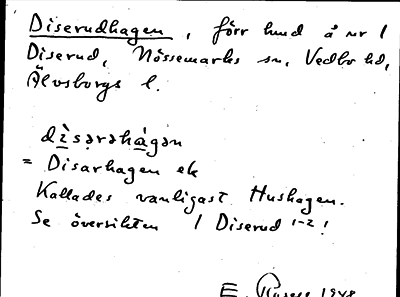 Diserudhagen, förr hmd å nr 1
Diserud, Nössemarks sn, Vedbo hd,
Älvsborgs l.
dìsərəhágən
= Disarhagen ek
Kallades vanligast Hushagen.
Se översikten / Diserud 1-2!
E. 1948